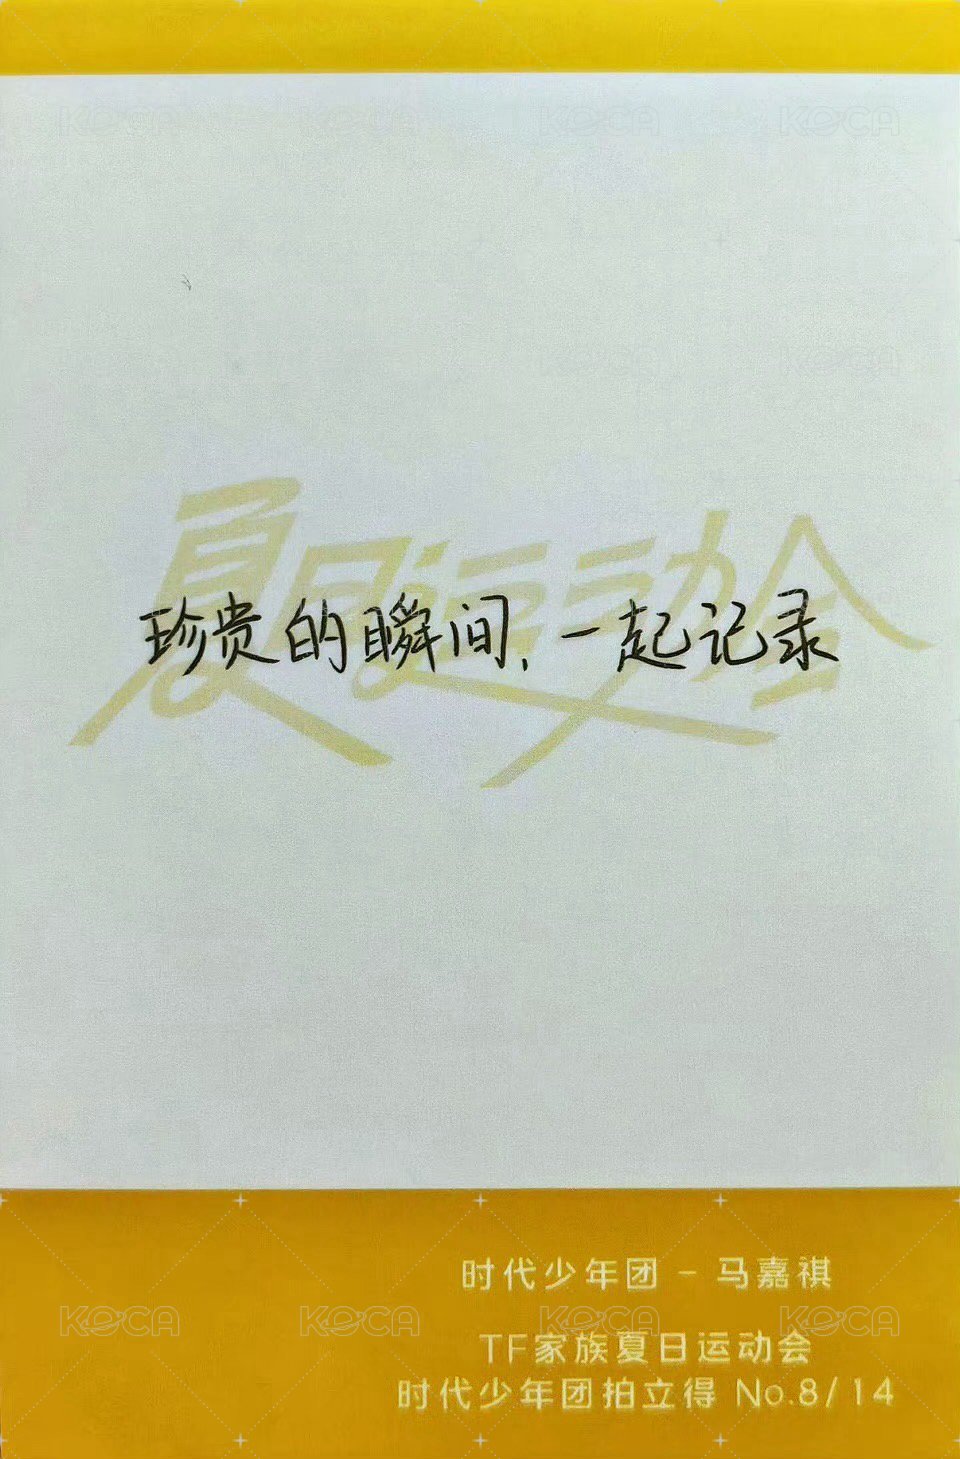 KOCA KOCA KOCA KOCA
KOCA KOCA
夏日运动会
珍贵的瞬间、一起记录
时代少年团 - 马嘉祺
KOCA KOCA KOCA KOCA
TF家族夏日运动会
时代少年团拍立得 No.8/14